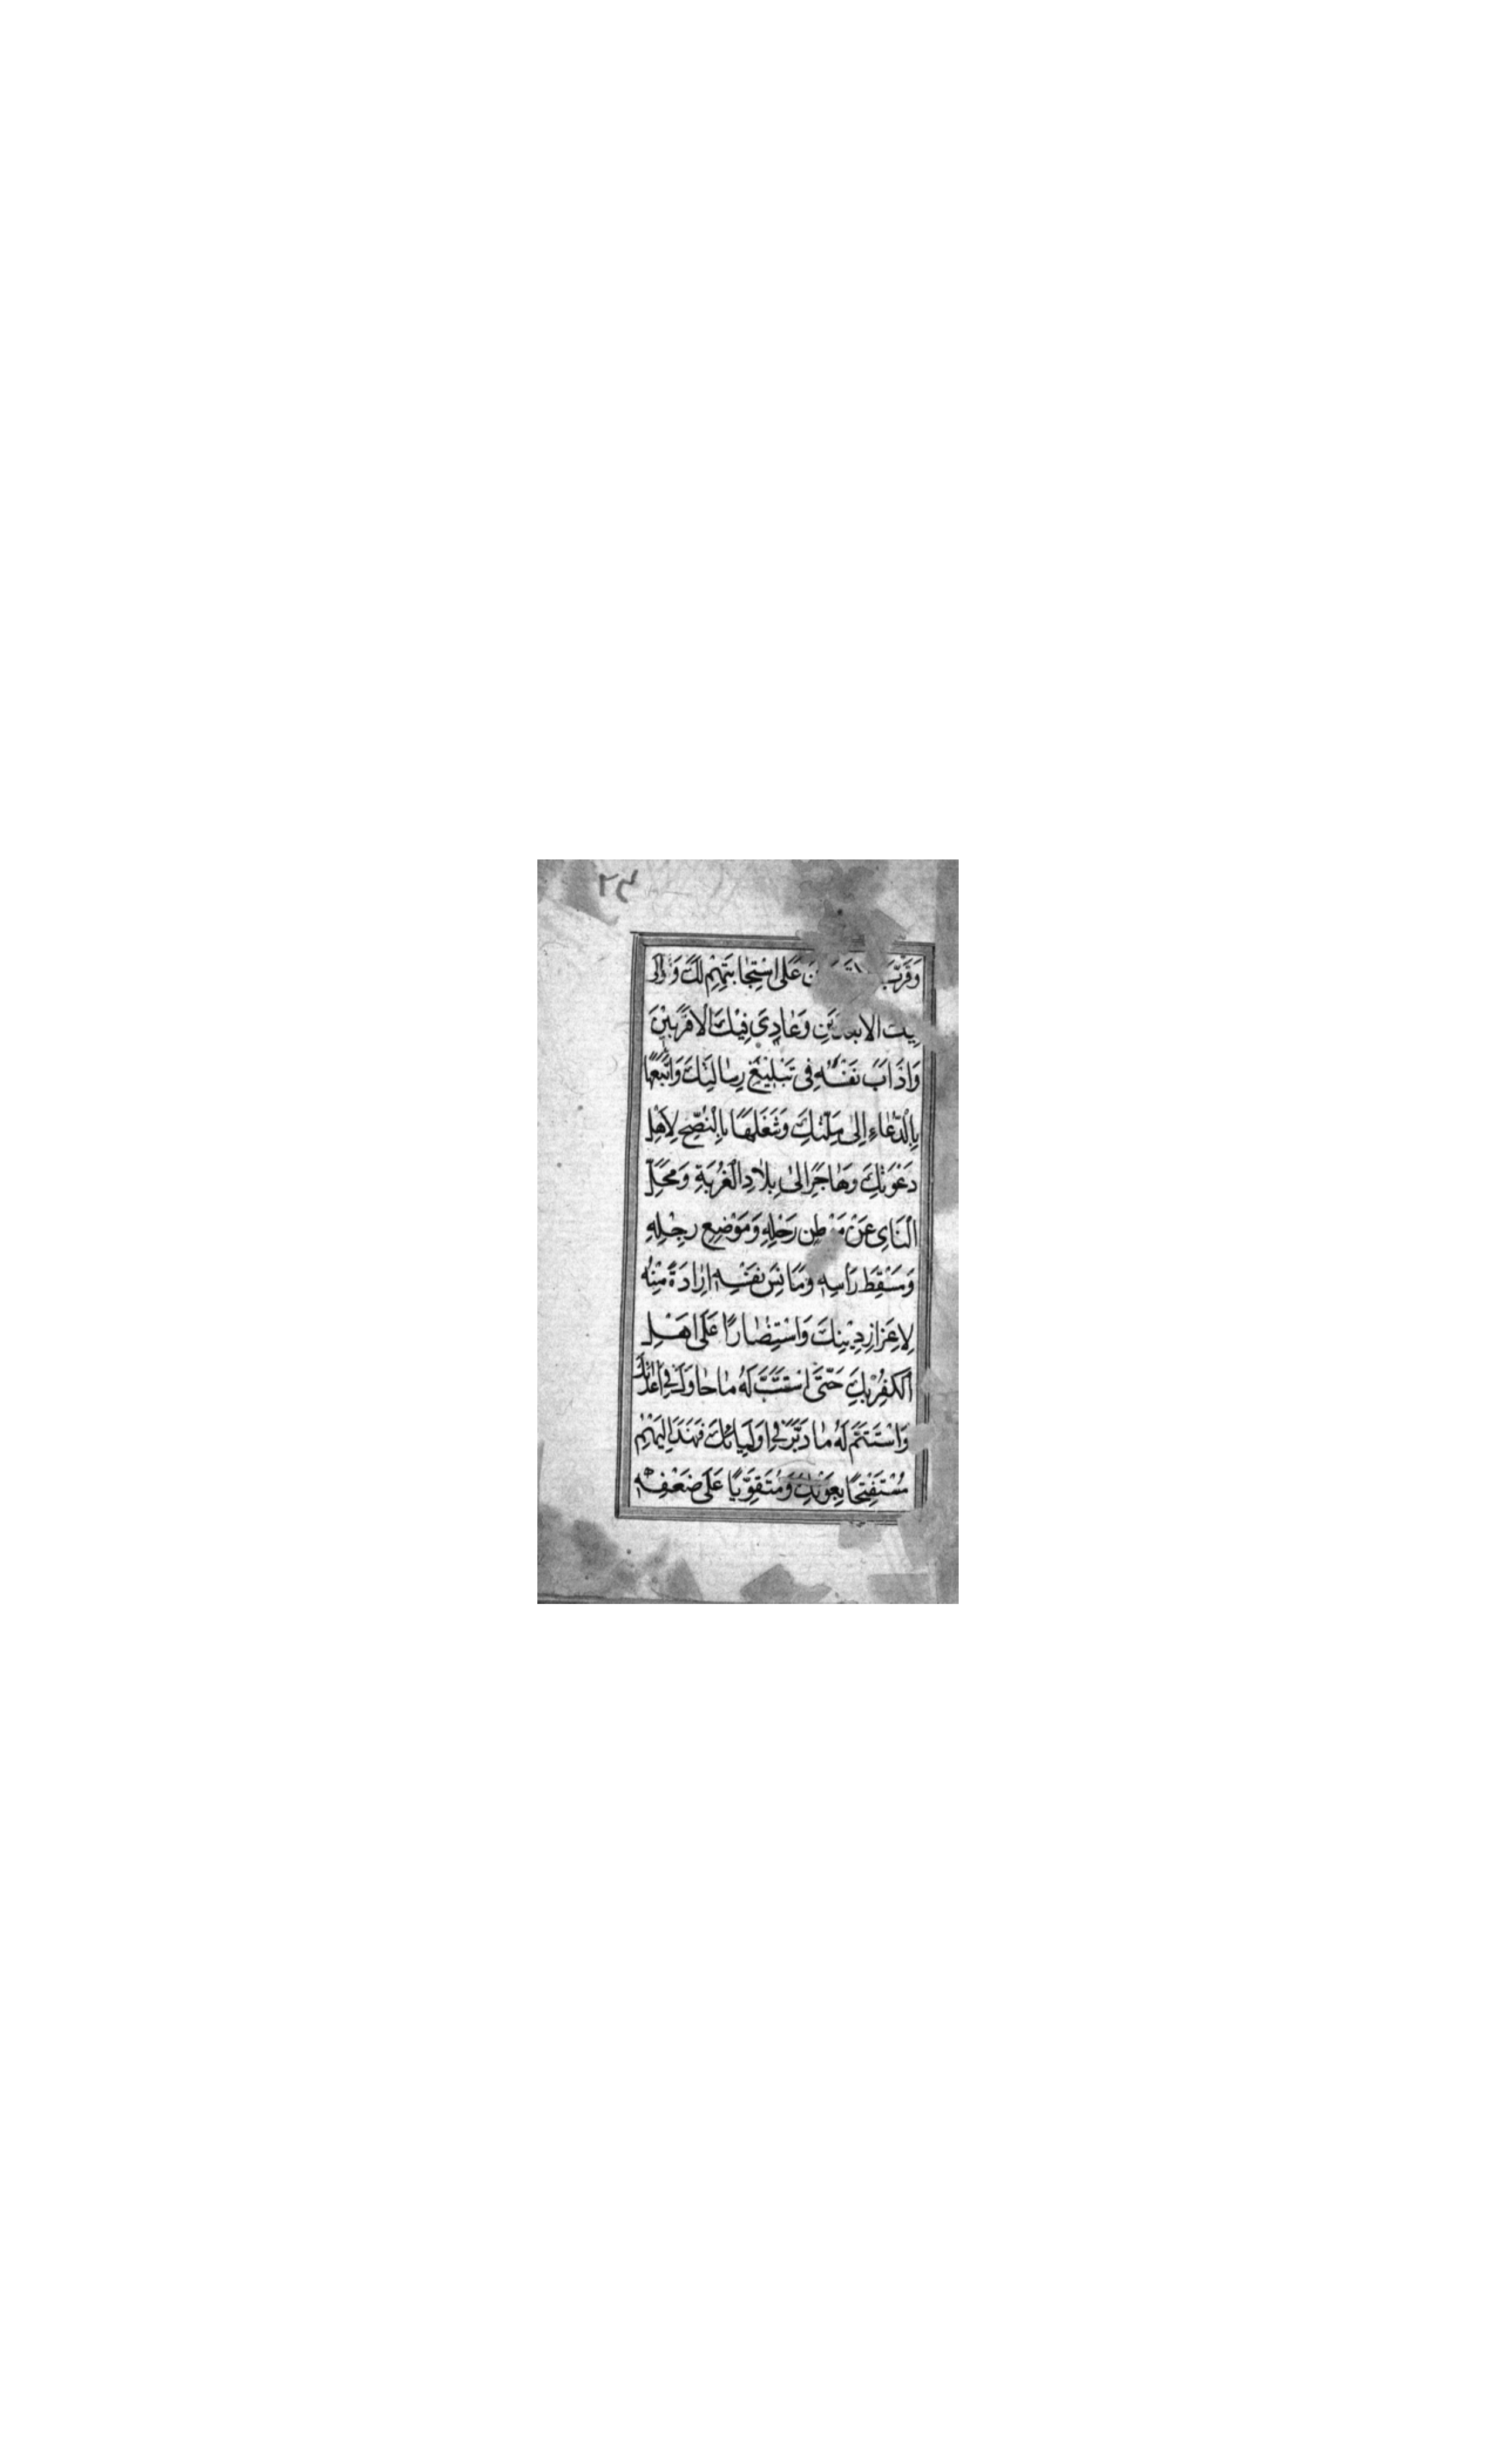 ٢٤
وَقَرَّبَ عَلَى اسْتِجَابَتِهِمْ لَكَ وَوَالَى
فِيكَ الْاَبْعَدِينَ وَعَادَى فِيْكَ الْاَقْرَبِيْنَ
وَاَذْاَبَ نَفْسَهُ فِي تَبْلِيْغِ رِسَالَتِكَ وَاَتْعَبَهَا
بِالدُّعَاءِ اِلَى مِلَّتِكَ وَشَغَلَهَا بِالنُّصْحِ لِاَهْلِ
دَعْوَتِكَ وَهَاجَرَ اِلَى بِلَادِ الْغُرْبَةِ وَمَحَلِّ
النَّاْىِ عَنْ مَوْطِنِ رَحْلِهِ وَمَوْضِعِ رِجْلِهِ
وَمَسْقَطِ رَأْسِهِ وَمَأْنَسِ نَفْسِهِ اِرَادَةً مِنْهُ
لِاِعْزَازِ دِيْنِكَ وَاسْتِنْصَارًا عَلَى اَهْلِ
الْكُفْرِ بِكَ حَتَّى اسْتَتَبَّ لَهُ مَا حَاوَلَ فِي اَعْدَائِكَ
وَاسْتَتَمَّ لَهُ مَا دَبَّرَ فِي اَوْلِيَائِكَ فَنَهَدَ اِلَيْهِمْ
مُسْتَفْتِحًا بِعَوْنِكَ وَمُتَقَوِّيًا عَلَى ضَعْفِهِ